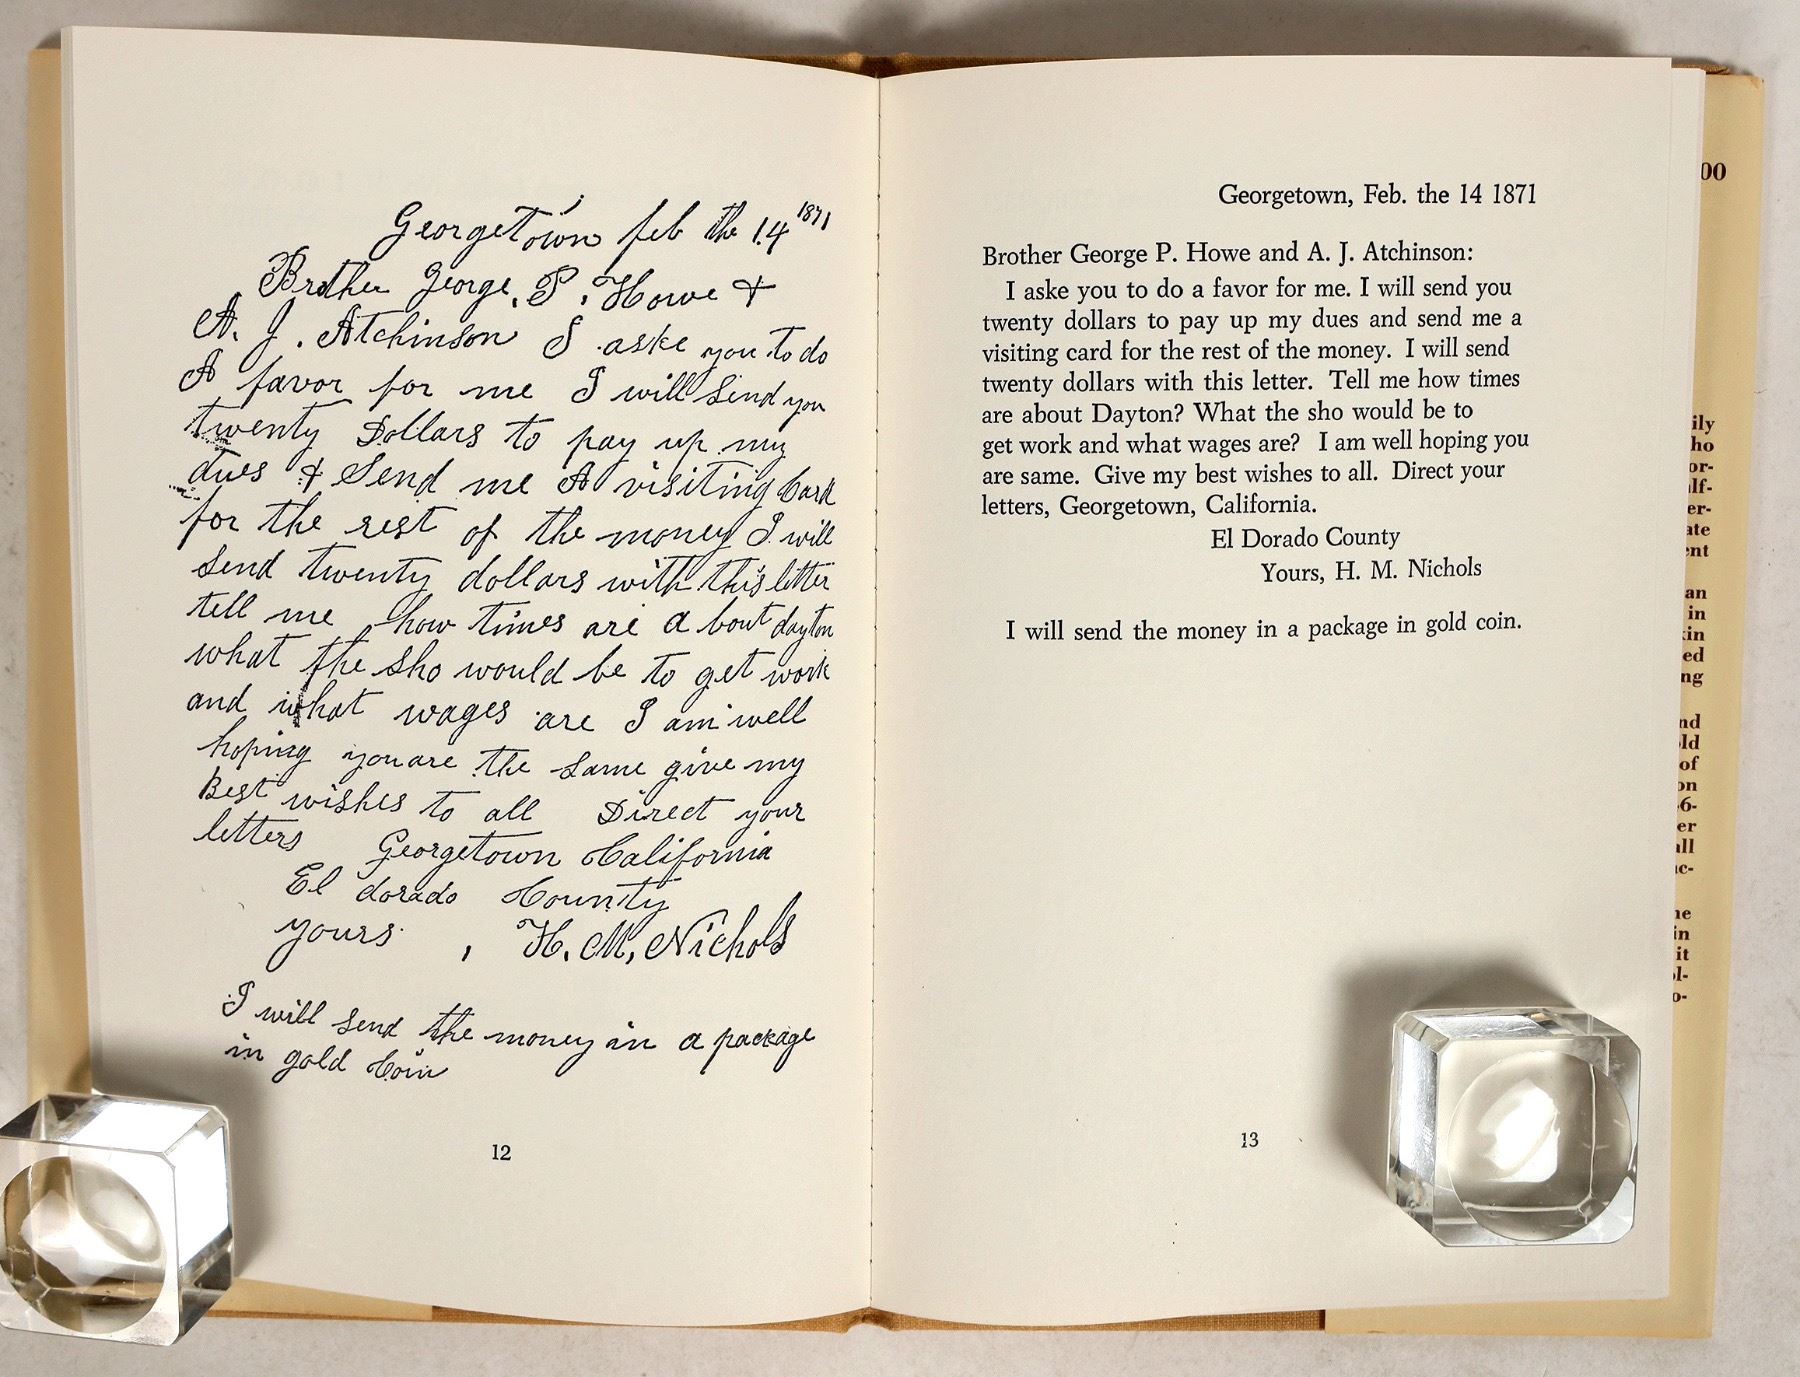 Georgetown feb the 14 1871
Brother George. P. Howe &
A. J. Atchinson I aske you to do
A favor for me I will Send you
twenty Dollars to pay up my
dues & Send me A visiting Card
for the rest of the money I will
Send twenty dollars with this letter
tell me how times are a bout dayton
what the sho would be to get work
and what wages are I am well
hoping you are the same give my
Best wishes to all Direct your
letters Georgetown California
El dorado County
yours , H. M, Nichols
I will send the money in a package
in gold Coin
12
Georgetown, Feb. the 14 1871
Brother George P. Howe and A. J. Atchinson:
I aske you to do a favor for me. I will send you
twenty dollars to pay up my dues and send me a
visiting card for the rest of the money. I will send
twenty dollars with this letter. Tell me how times
are about Dayton? What the sho would be to
get work and what wages are? I am well hoping you
are same. Give my best wishes to all. Direct your
letters, Georgetown, California.
El Dorado County
Yours, H. M. Nichols
I will send the money in a package in gold coin.
13
00
ily
ho
or-
lf-
er-
ate
ent
an
in
kin
ed
ng
nd
old
of
on
6-
er
all
ac-
he
in
it
ol-
o-